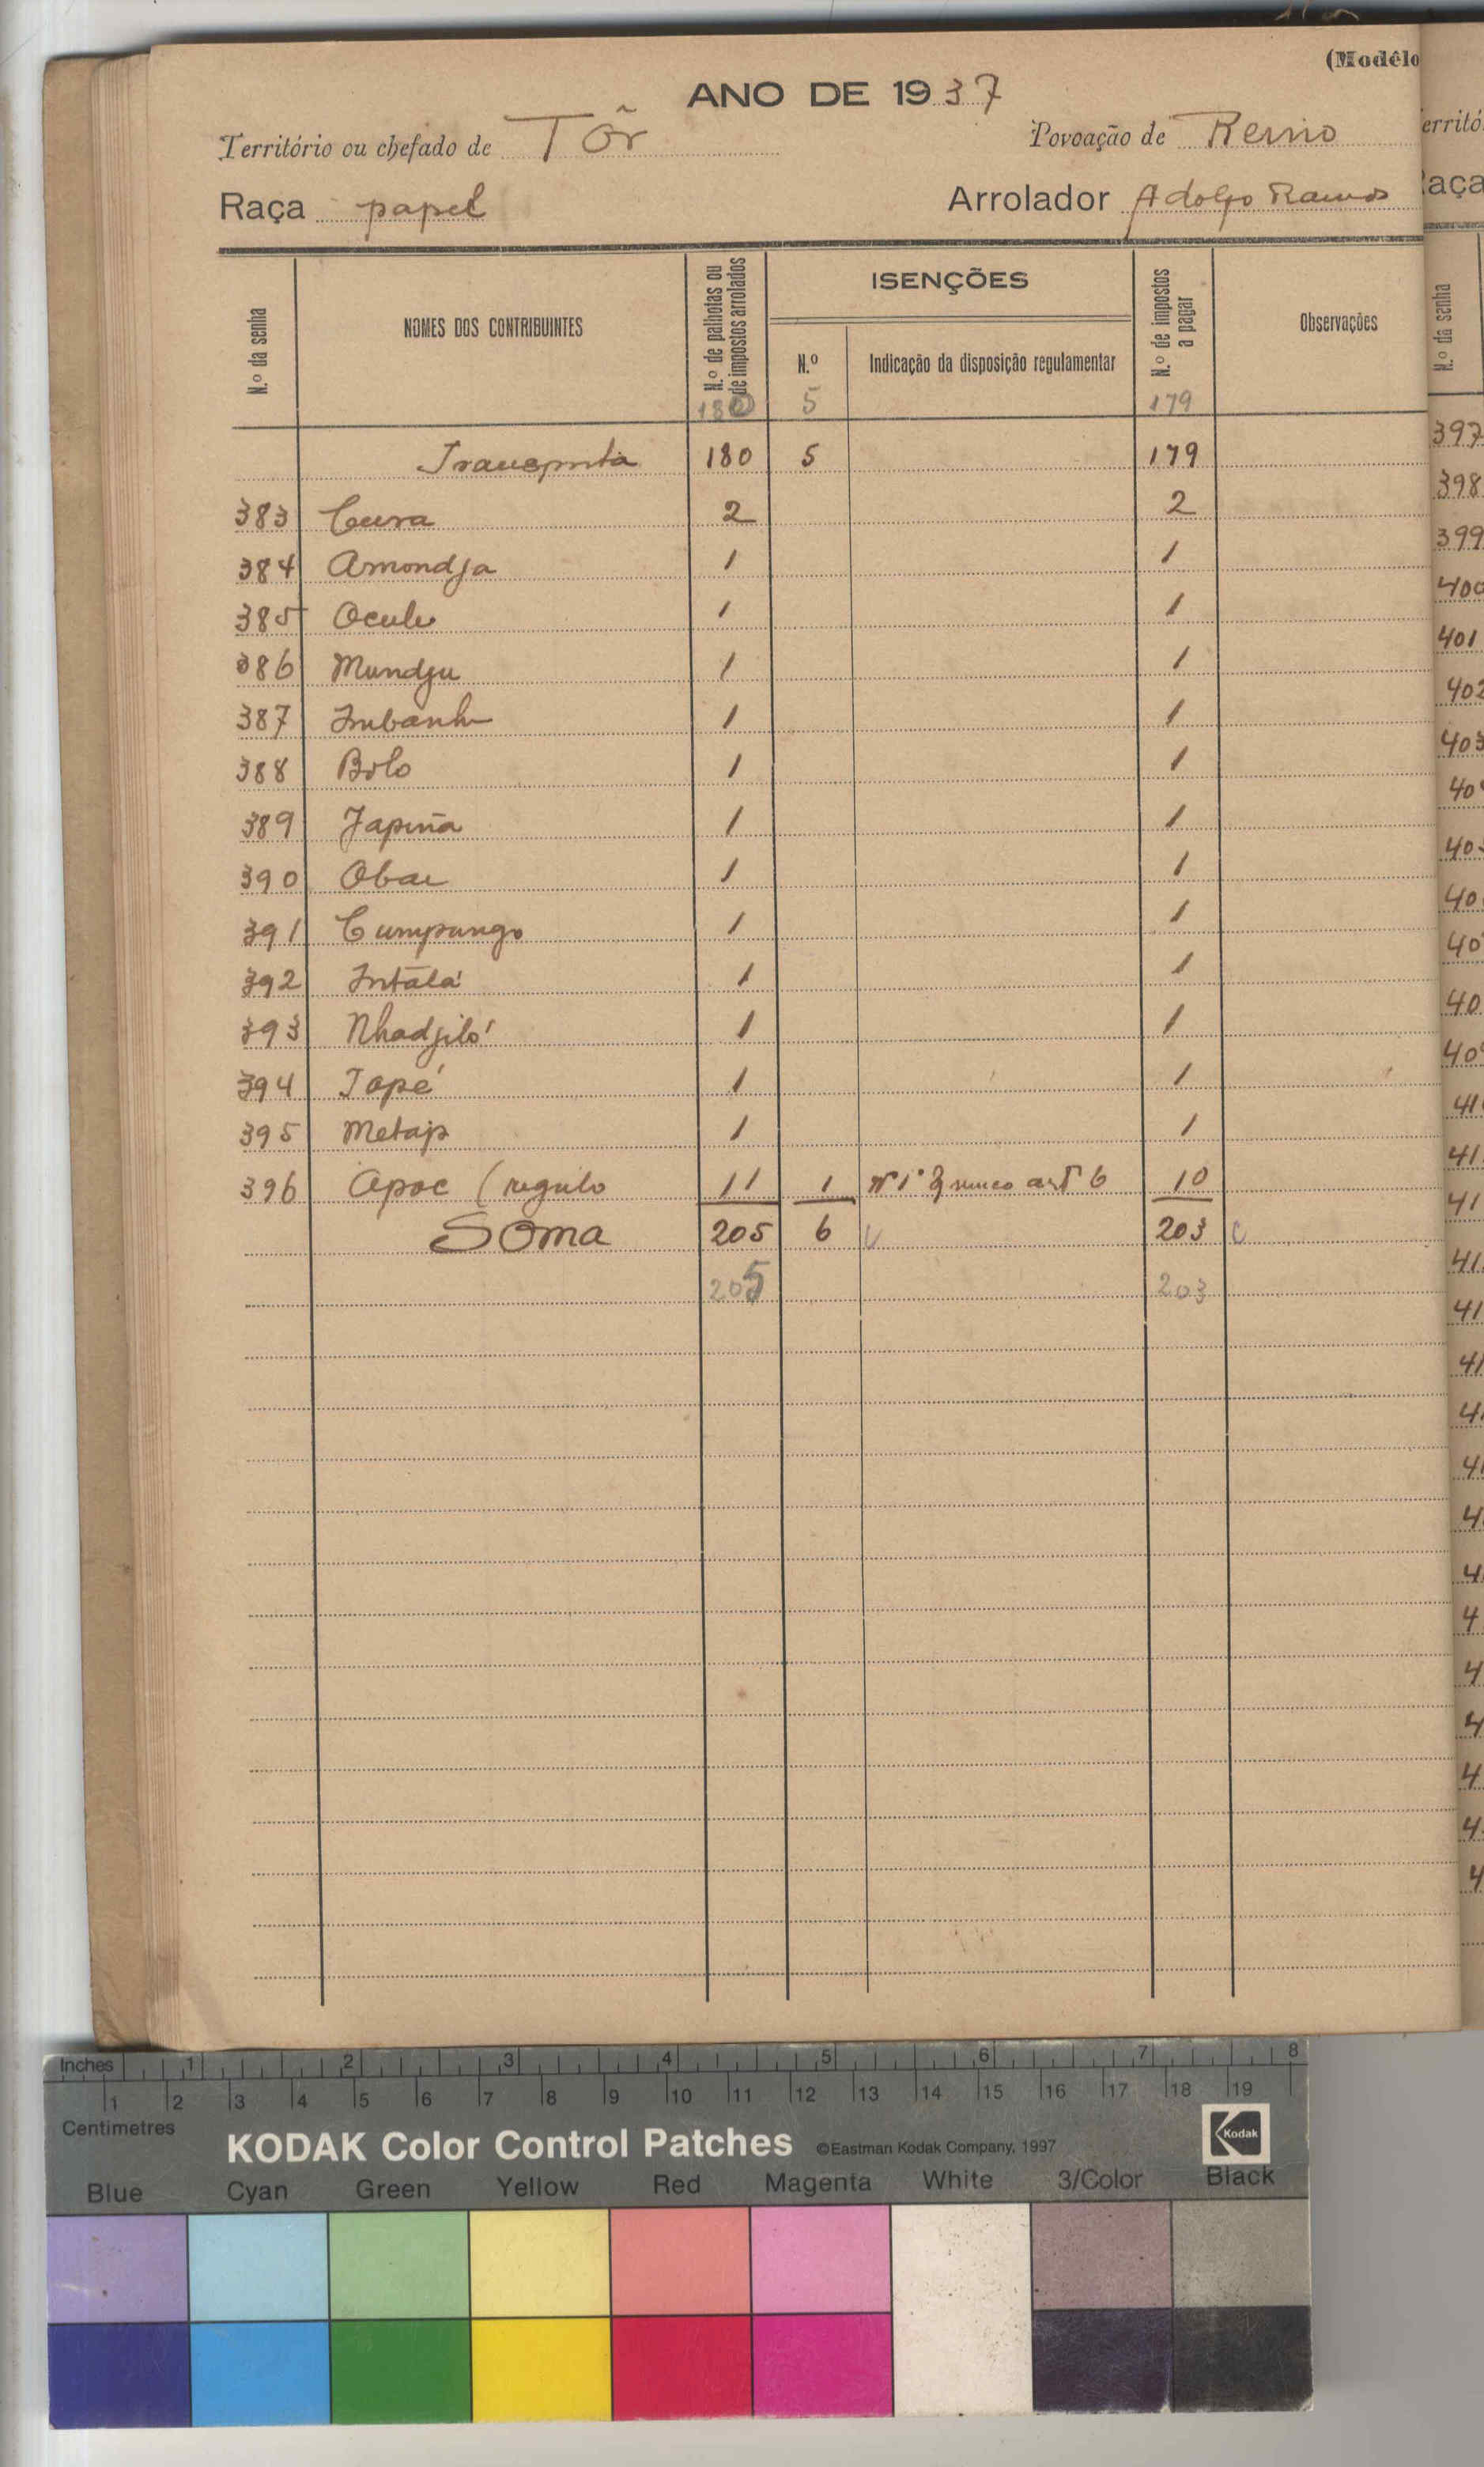 (Modêlo
ANO DE 1937
Território ou chefado de Tõr Povoação de Reino
Raça papel Arrolador Adolfo Ramos
N.º da senha
NOMES DOS CONTRIBUINTES
N.º de palhotas ou de impostos arrolados
ISENÇÕES
N.º
Indicação da disposição regulamentar
N.º de impostos a pagar
Observações
180 5 179
Transporta 180 5 179
383 Cura 2 2
384 Amondja 1 1
385 Ocule 1 1
386 Mundju 1 1
387 Imbanh 1 1
388 Bolo 1 1
389 Japina 1 1
390 Obae 1 1
391 Cumpungo 1 1
392 Intālá 1 1
393 Nhadjiló 1 1
394 Japé 1 1
395 Metap 1 1
396 Apoc (regulo 11 1 Nº 1º art 6 10
Soma 205 6 203
205 203
erritó
aça
N.º da senha
397
398
399
400
401
402
403
Inches 1 2 3 4 5 6 7 8
1 2 3 4 5 6 7 8 9 10 11 12 13 14 15 16 17 18 19
Centimetres
KODAK Color Control Patches ©Eastman Kodak Company, 1997 Kodak
Blue Cyan Green Yellow Red Magenta White 3/Color Black